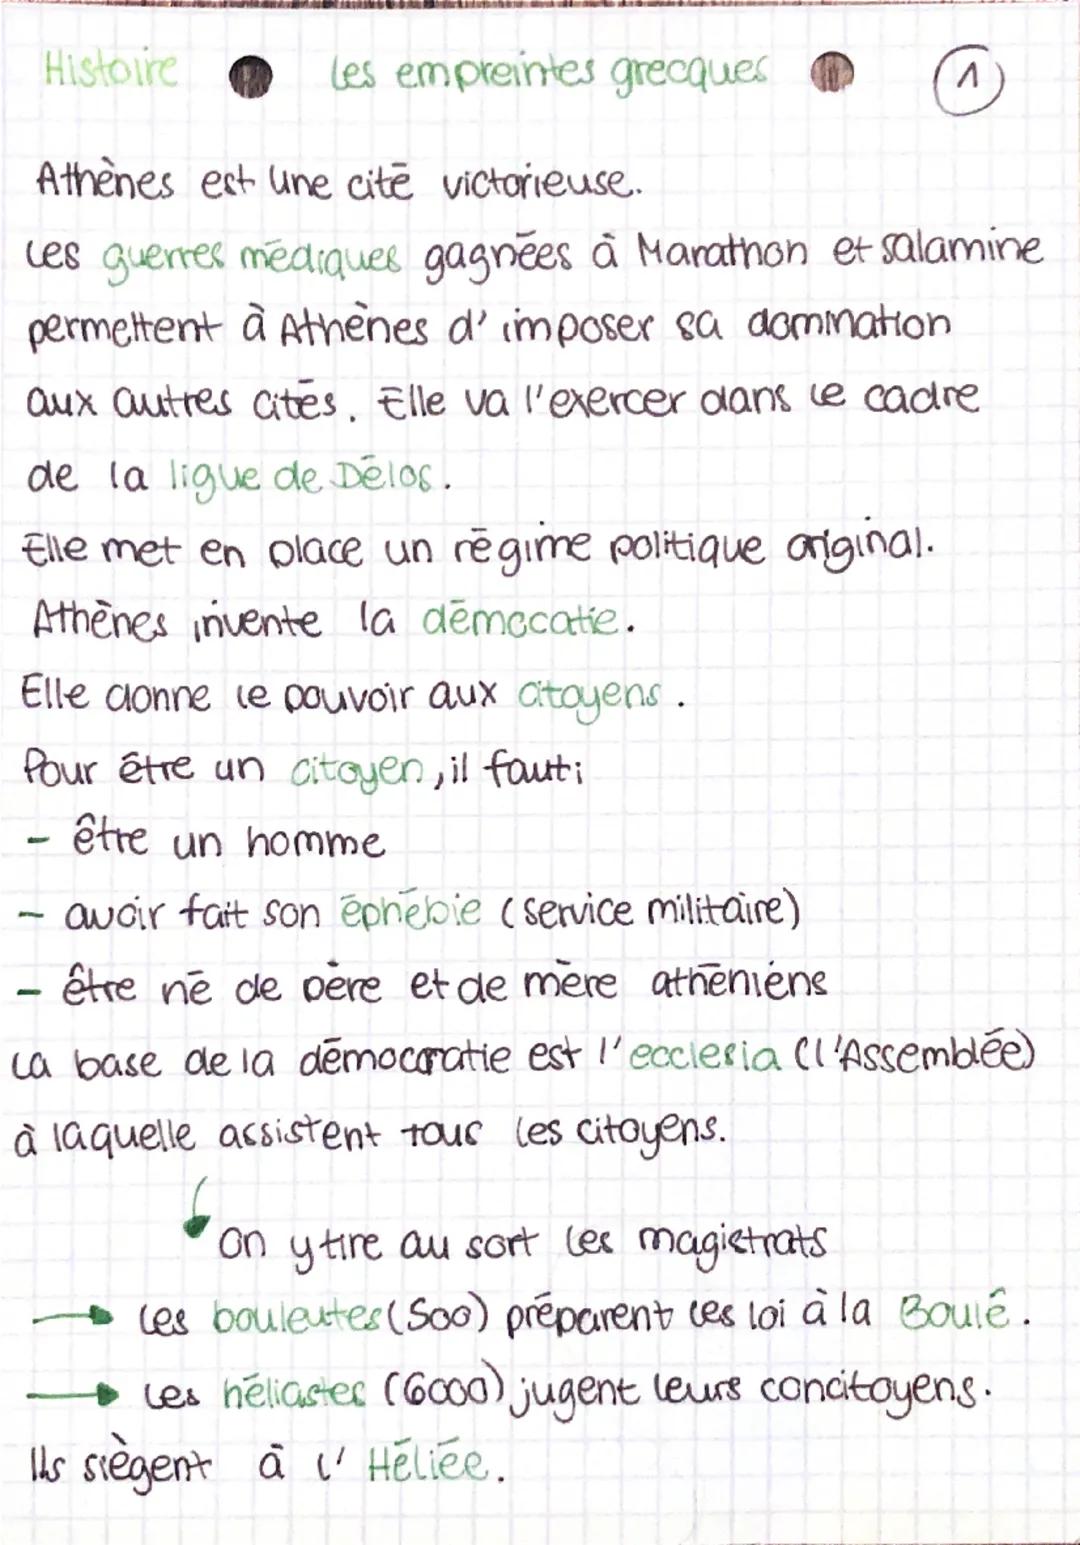 Histoire Les empreintes grecques 1
Athènes est une cité victorieuse.
Les guerres médiques gagnées à Marathon et salamine
permettent à Athènes d'imposer sa domination
aux autres cités. Elle va l'exercer dans le cadre
de la ligue de Délos.
Elle met en place un régime politique original.
Athènes invente la démocatie.
Elle donne le pouvoir aux citoyens.
Pour être un citoyen, il faut:
- être un homme
- avoir fait son éphébie (service militaire)
- être né de père et de mère athéniens
La base de la démocratie est l'ecclesia (l'Assemblée)
à laquelle assistent tous les citoyens.
On y tire au sort les magistrats
→ Les bouleutes (500) préparent les loi à la Boulê.
→ Les héliastes (6000) jugent leurs concitoyens.
Ils siègent à l'Héliée.